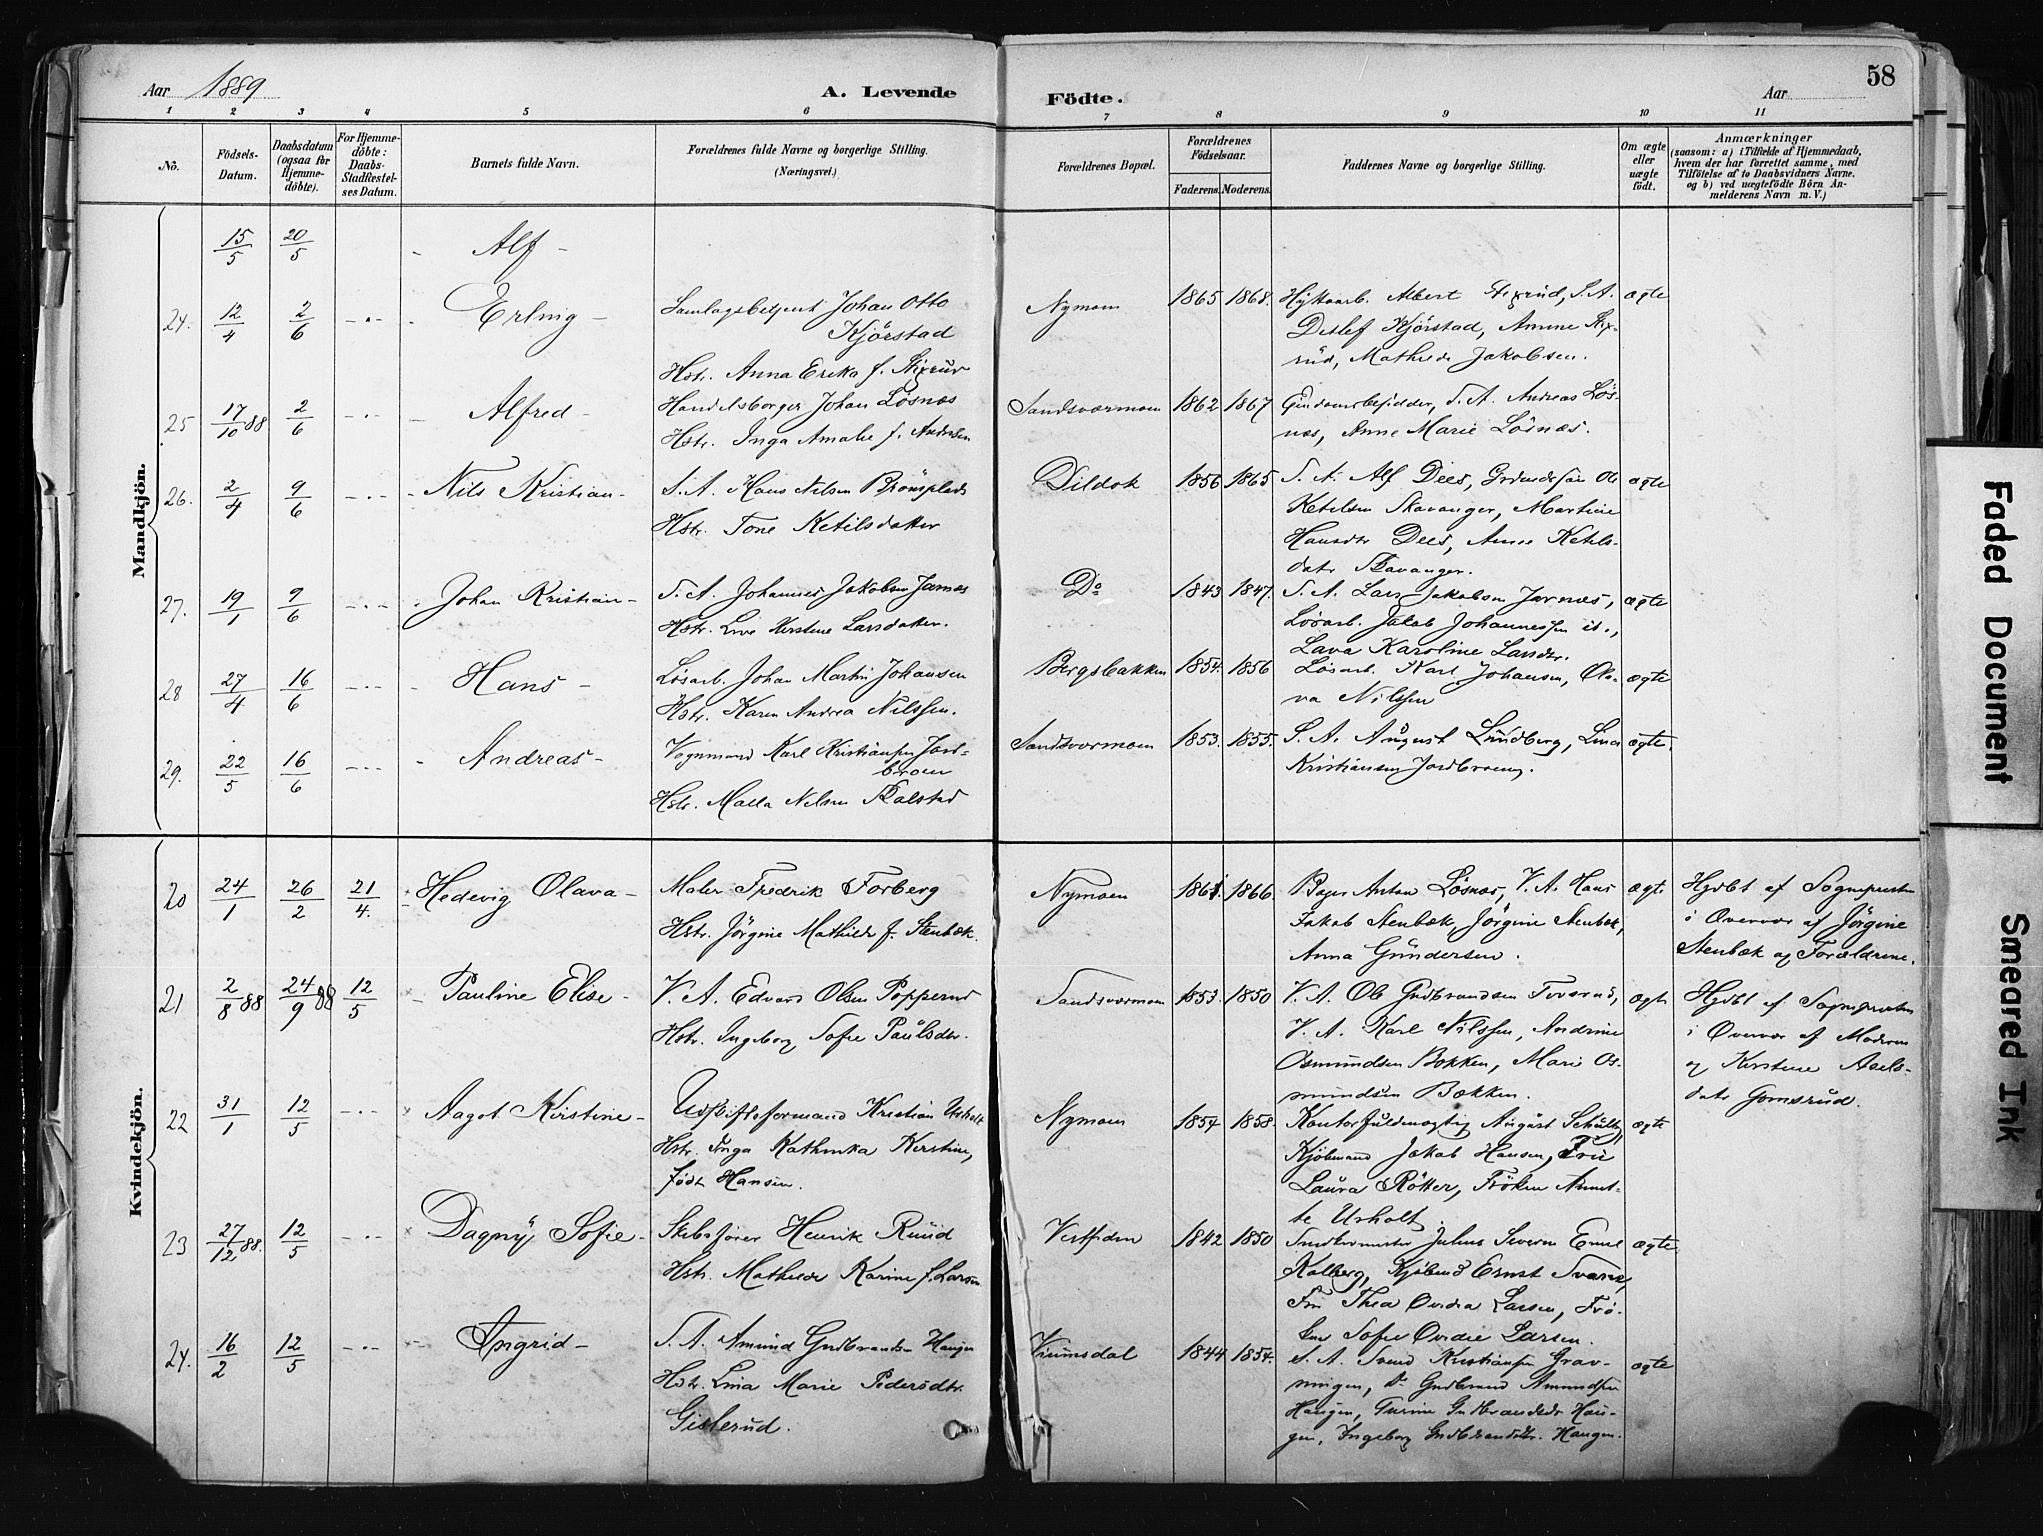 Aar 1889
A. Levende
Födte.
Aar
58
1 2 3 4 5 6 7 8 9 10 11
No.
Födsels-
Datum.
Daabsdatum
(ogsaa for
Hjemme-
döbte).
For Hjemme-
döbte:
Daabs-
Stadfæstel-
ses Datum.
Barnets fulde Navn.
Forældrenes fulde Navne og borgerlige Stilling.
(Næringsvei.)
Forældrenes Bopæl.
Forældrenes
Födselsaar.
Faderens. Moderens.
Faddernes Navne og borgerlige Stilling.
Om ægte
eller
uægte
födt.
Anmærkninger
(saasom: a) i Tilfælde af Hjemmedaab,
hvem der har forrettet samme, med
Tilföielse af to Daabsvidners Navne.
og b) ved uægtefödte Börn An-
melderens Navn m. V.)
Mandkjön.
15/5 20/5 - Alf -
24. 12/4 2/6 Erling -
Samlagsbetjent Johan Otto
Kjörstad
Hstr. Anna Erika f. Stixrud
Nymoen 1865 1868.
Hyttearb. Albert Stixrud, S. A.
Detlef Kjörstad, Amme Stix-
rud, Mathilde Jakobsen.
ægte
25 17/10 88 2/6 Alfred -
Handelsborger Johan Lösnæs
Hstr. Inga Amalie f. Andersen
Sandsværmoen 1862 1867
Eiendomsbesidder, S. A. Andreas Lös-
næs, Anne Marie Lösnæs.
26. 2/4 9/6 Nils Kristian -
S. A. Hans Nilsen Brönsplads
Hstr. Tone Ketilsdatter
Dildok 1856 1865
S. A. Alf Dees, Ole
Ketilsen Skavanger, Martine
Hansdtr Dees, Anne Ketils-
datr Skavanger.
ægte
27. 19/1 9/6 Johan Kristian -
S. A. Johannes Jakobsen Jarnes
Hstr. Live Kerstine Larsdatter.
Do 1843 1847.
S. A. Lars Jakobsen Jarnæs,
Lösarb. Jakob Johannessen
Lava Karoline Larsdtr.
ægte
28 27/4 16/6 Hans -
Lösarb. Johan Martin Johansen
Hstr. Karen Andrea Nilssen.
Bergsbakken 1854. 1856
Lösarb. Karl Johansen, Ola-
va Nilssen
ægte
29. 22/5 16/6 Andreas -
Vognmand Karl Kristiansen Jord-
broen
Hstr. Malla Nilsen Skalstad
Sandsværmoen 1853. 1855.
S. A. August Lundberg, Lina
Kristiansen Jordbroen.
ægte.
Kvindekjön.
20 24/1 26/2 21/4. Hedevig Olava -
Maler Fredrik Forberg
Hstr. Jörgine Mathilde f. Stenbæk.
Nymoen 1861. 1866.
Bager Anton Lösnæs, V. A. Hans
Jakob Stenbæk, Jörgine Stenbæk,
Anna Gundersen.
ægt.
Hjdbt af Sognepresten
i Overvær af Jörgine
Stenbæk og Forældrene.
21 2/8 88 24/9 88 12/5 Pauline Elise -
V. A. Edvard Olsen Popperud
Hstr. Ingeborg Sofie Paulsdtr.
Sandsværmoen 1853. 1850
V. A. Ole Gudbrandsen Tovsrud,
V. A. Karl Nilssen, Andrine
Osmundsen Bækken, Marie Os-
mundsen Bækken.
ægte
Hjdbt af Sognepresten
i Overvær af Moderen
og Kirstine Axels-
datr Gomsrud.
22 31/1 12/5 Aagot Kirstine -
Udskifteformand Kristian Usholt
Hstr. Inga Kathinka Kerstine,
född Hansen.
Nymoen 1854 1858.
Kontorfuldmægtig August Schultz,
Kjöbmand Jakob Hansen, Fru
Laura Rötter, Fröken Annet-
te Usholt
ægte
23 27/12 88. 12/5 Dagny Sofie -
Skibsförer Henrik Ruud
Hstr. Mathilde Karine f. Larsen
Vestfiden 1842 1850
Julius Severin Emil
Kolberg, Kjöbmd Ernst Svane,
Fru Thea Ovidia Larsen, Frö-
ken Sofie Ovidie Larsen.
ægte
24. 16/2 12/5 Ingrid -
S. A. Amund Gudbrandsen Haugen
Hstr. Lina Marie Pedersdtr.
Gislerud.
Viumsdal 1844 1854.
S. A. Svend Kristiansen Grav-
ningen, Do Gudbrand Amundsen
Haugen, Gurine Gudbrandsdr Hau-
gen, Ingeborg Gudbrandsdtr. Haugen.
ægte
Faded Document
Smeared Ink